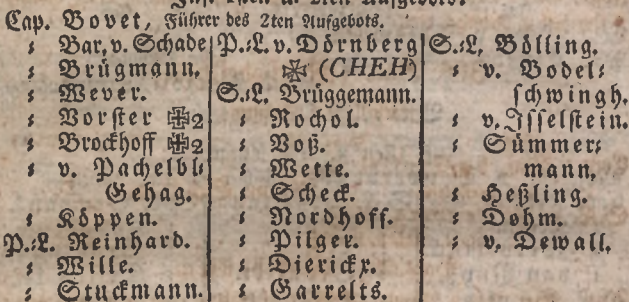 Inf. 1sten u. 2ten Aufgebots.
Cap. Bovet, Führer des 2ten Aufgebots.
⸗ Bar. v. Schade
⸗ Brügmann.
⸗ Wever.
⸗ Vorster ✠2
⸗ Brockhoff ✠2
⸗ v. Pachelbl⸗
Gehag.
⸗ Köppen.
P.⸗L. Reinhard.
⸗ Wille.
⸗ Stuckmann.
P.⸗L. v. Dörnberg
✠ (CHEH)
S.⸗L. Brüggemann.
⸗ Rochol.
⸗ Voß.
⸗ Wette.
⸗ Scheck.
⸗ Nordhoff.
⸗ Pilger.
⸗ Dierickx.
⸗ Garrelts.
S.⸗L. Bölling.
⸗ v. Bodel⸗
schwingh.
⸗ v. Isselstein.
⸗ Sümmer⸗
mann.
⸗ Heßling.
⸗ Dohm.
⸗ v. Dewall.